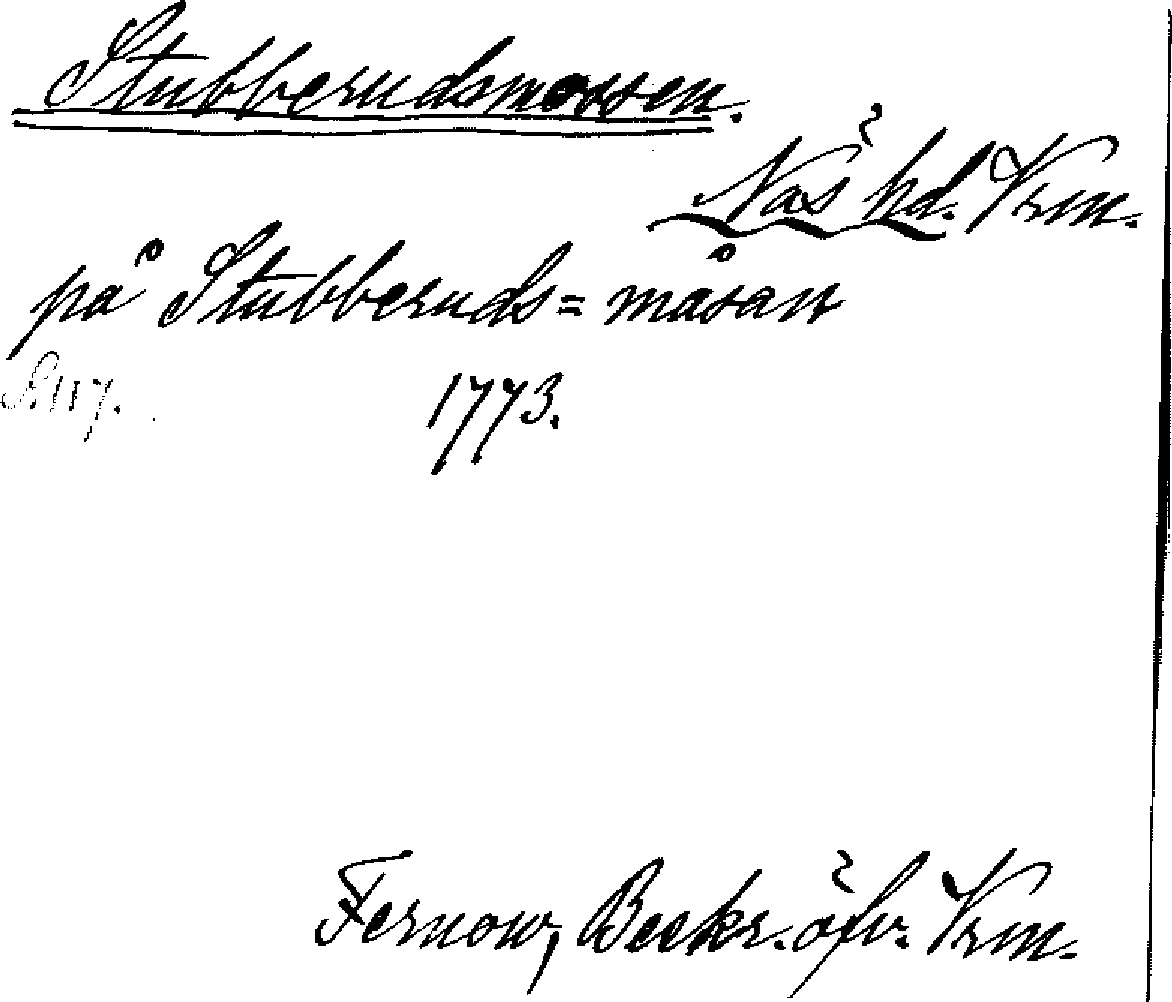 Stubberudsmossen.
Näs hd. Vrm.
på Stubberuds=måsan
S. 157. 1773.
Fernow, Beskr. öfv. Vrm.